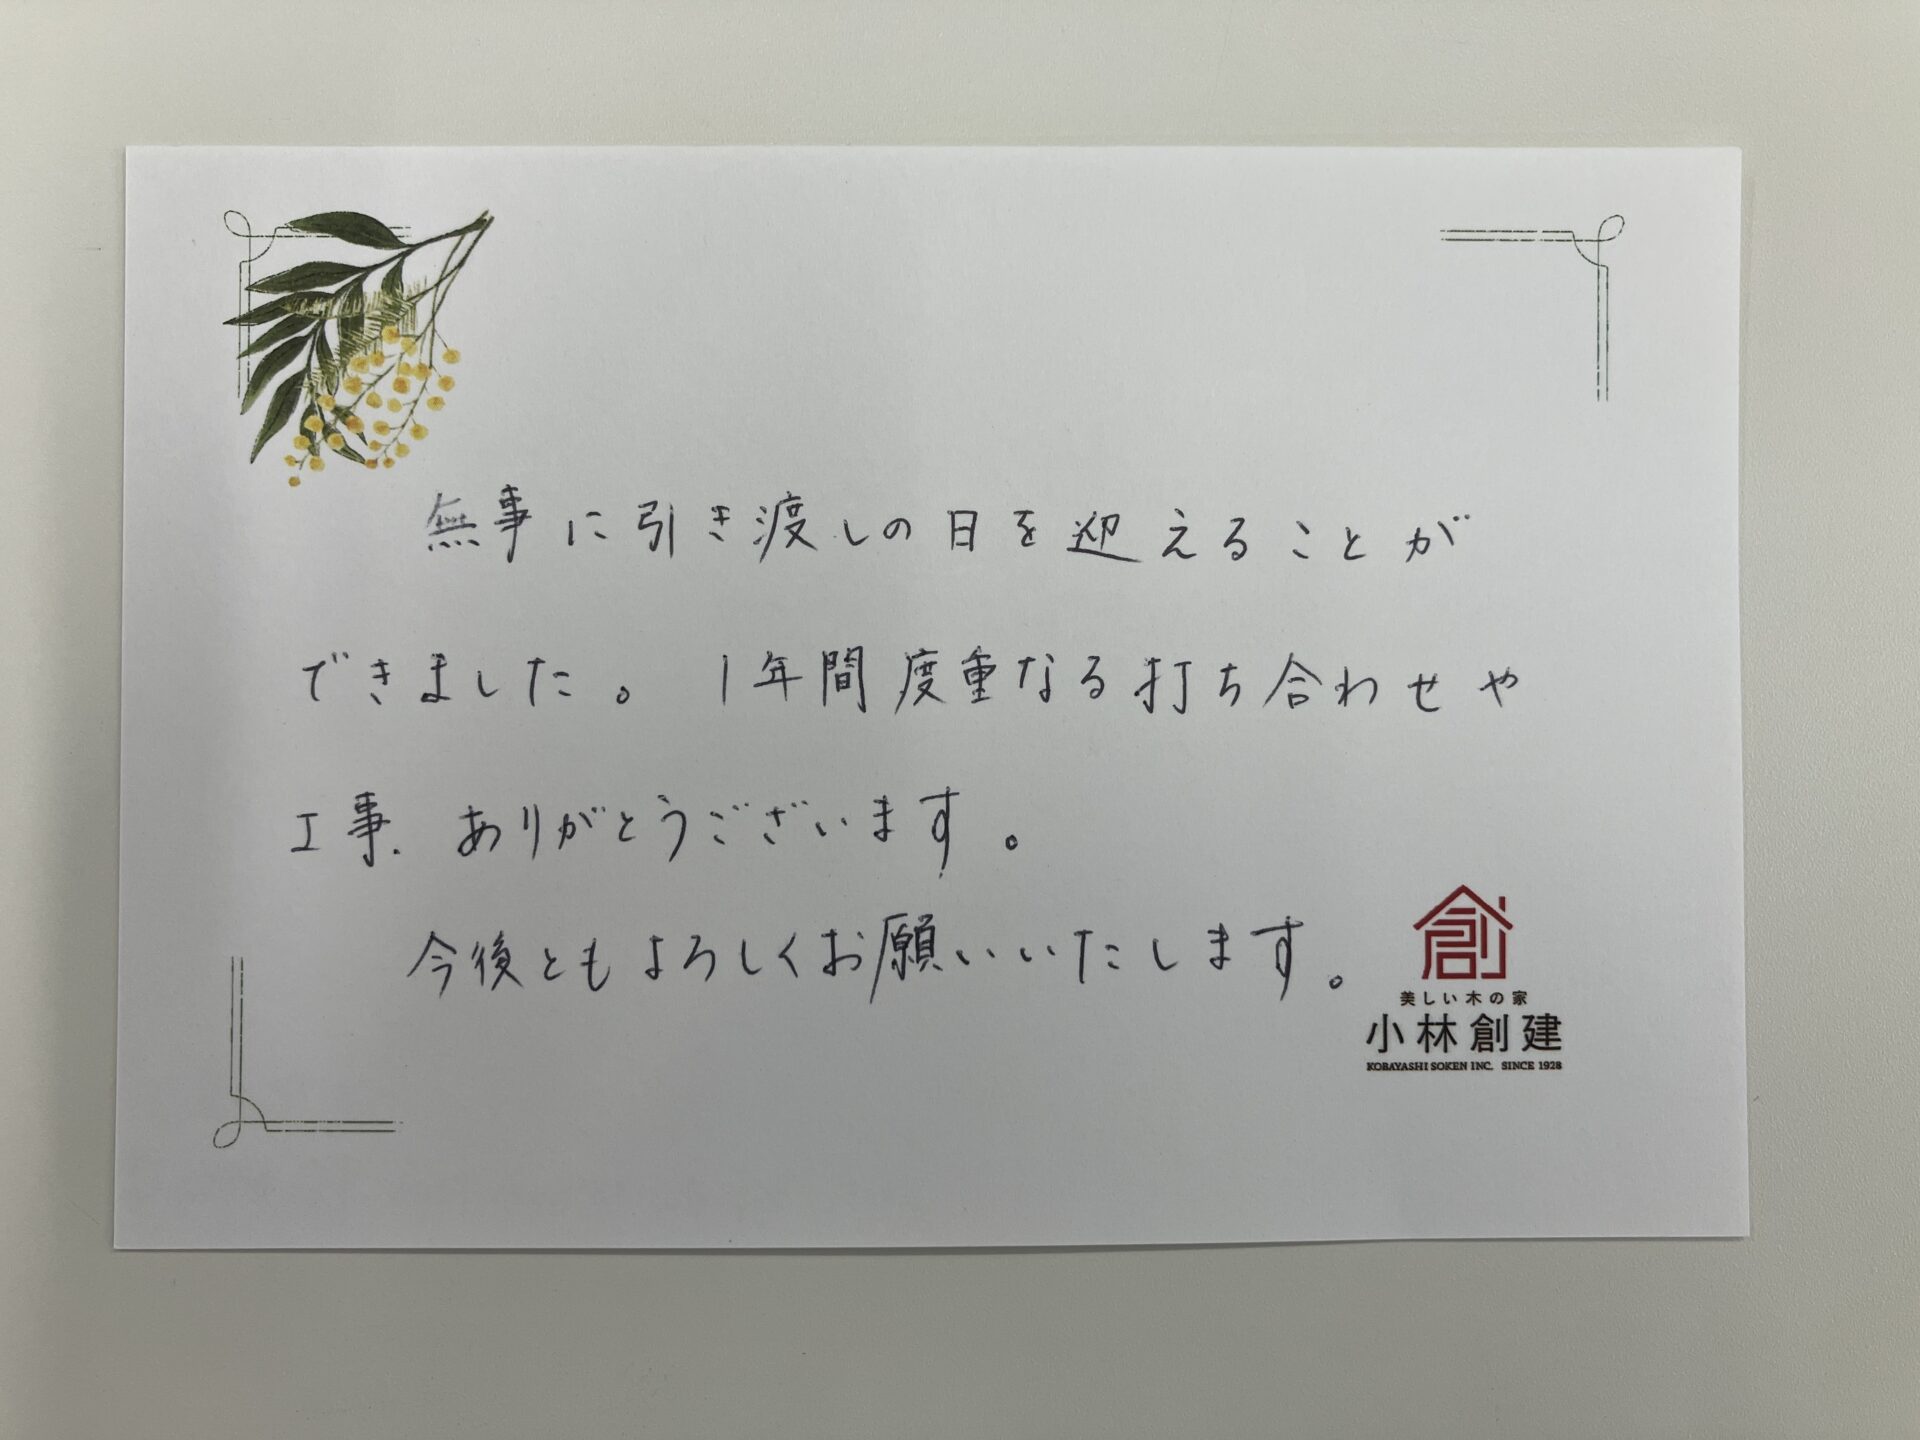 無事に引き渡しの日を迎えることが
できました。1年間度重なる打ち合わせや
工事、ありがとうございます。
今後ともよろしくお願いいたします。
創
美しい木の家
小林創建
KOBAYASHI SOKEN INC. SINCE 1928